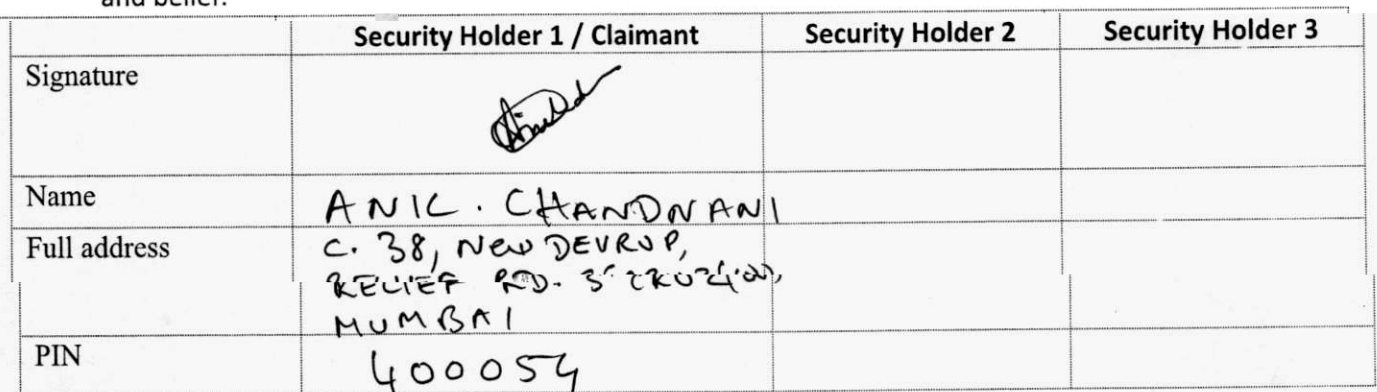 and belief.
Security Holder 1 / Claimant Security Holder 2 Security Holder 3
Signature
Name ANIL. CHANDNANI
Full address C. 38, New DEVRUP,
RELIEF RD.
MUMBAI
PIN 400054